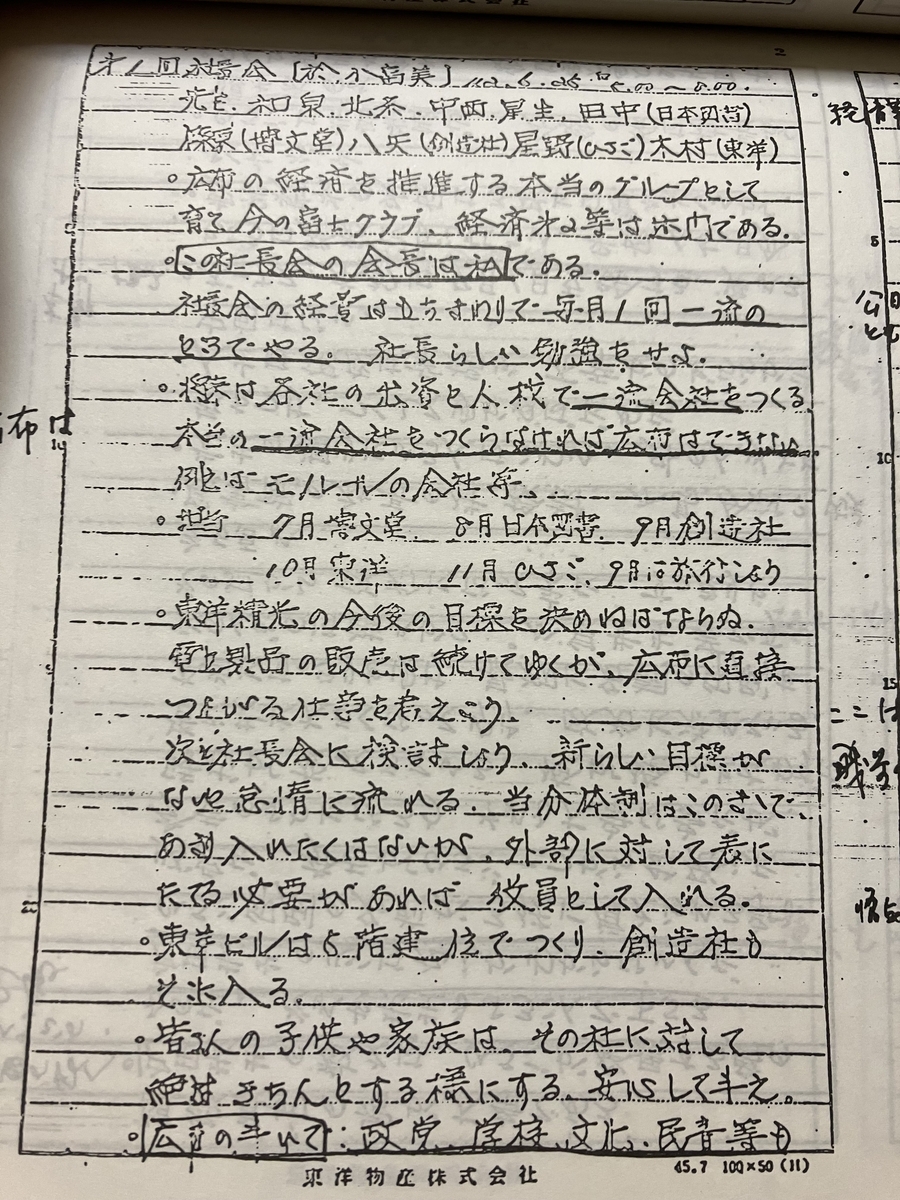 才1回社長会 [於、小富美] 42.5.25 6.00～8.00.
先生. 和泉. 北条. 中西. 星生. 田中(日本図書)
深栄(博文堂)八矢(創造社)星野(ひさご)木村(東洋)
○広布の経済を推進する本当のグループとして
育て今の富士クラブ、経済 等は 門である.
○この社長会の会長は私である.
社長会の経費はもちまわりで毎月1回一流の
ところでやる。 社長らしい勉強をせよ.
○将来は各社の出資と人材で一流会社をつくる
本当の一流会社をつくらなければ広布はできない
例えばモノレールの会社等、
○担当 7月博文堂 8月日本図書 9月創造社
10月東洋 11月ひさご、9月は旅行しよう
○東洋精光の今後の目標を決めねばならぬ.
電化製品の販売は続けてゆくが、広布に直接
つながる仕事を考えよう.
次の社長会に検討しよう、新らしい目標が
ないと怠惰に流れる. 当分体制はこのままで、
あまり入れたくはないが、外部に対して表に
たてる必要があれば 役員として入れる.
○東洋ビルは5階建位でつくり、創造社も
そこへ入る.
○皆さんの子供や家族は、その社に対して
絶対きちんとする様にする、安心して下さい。
○広布の 政党、学校、文化、民音等も
東洋物産株式会社
45.7 100×50(11)
布は
公明
ここは